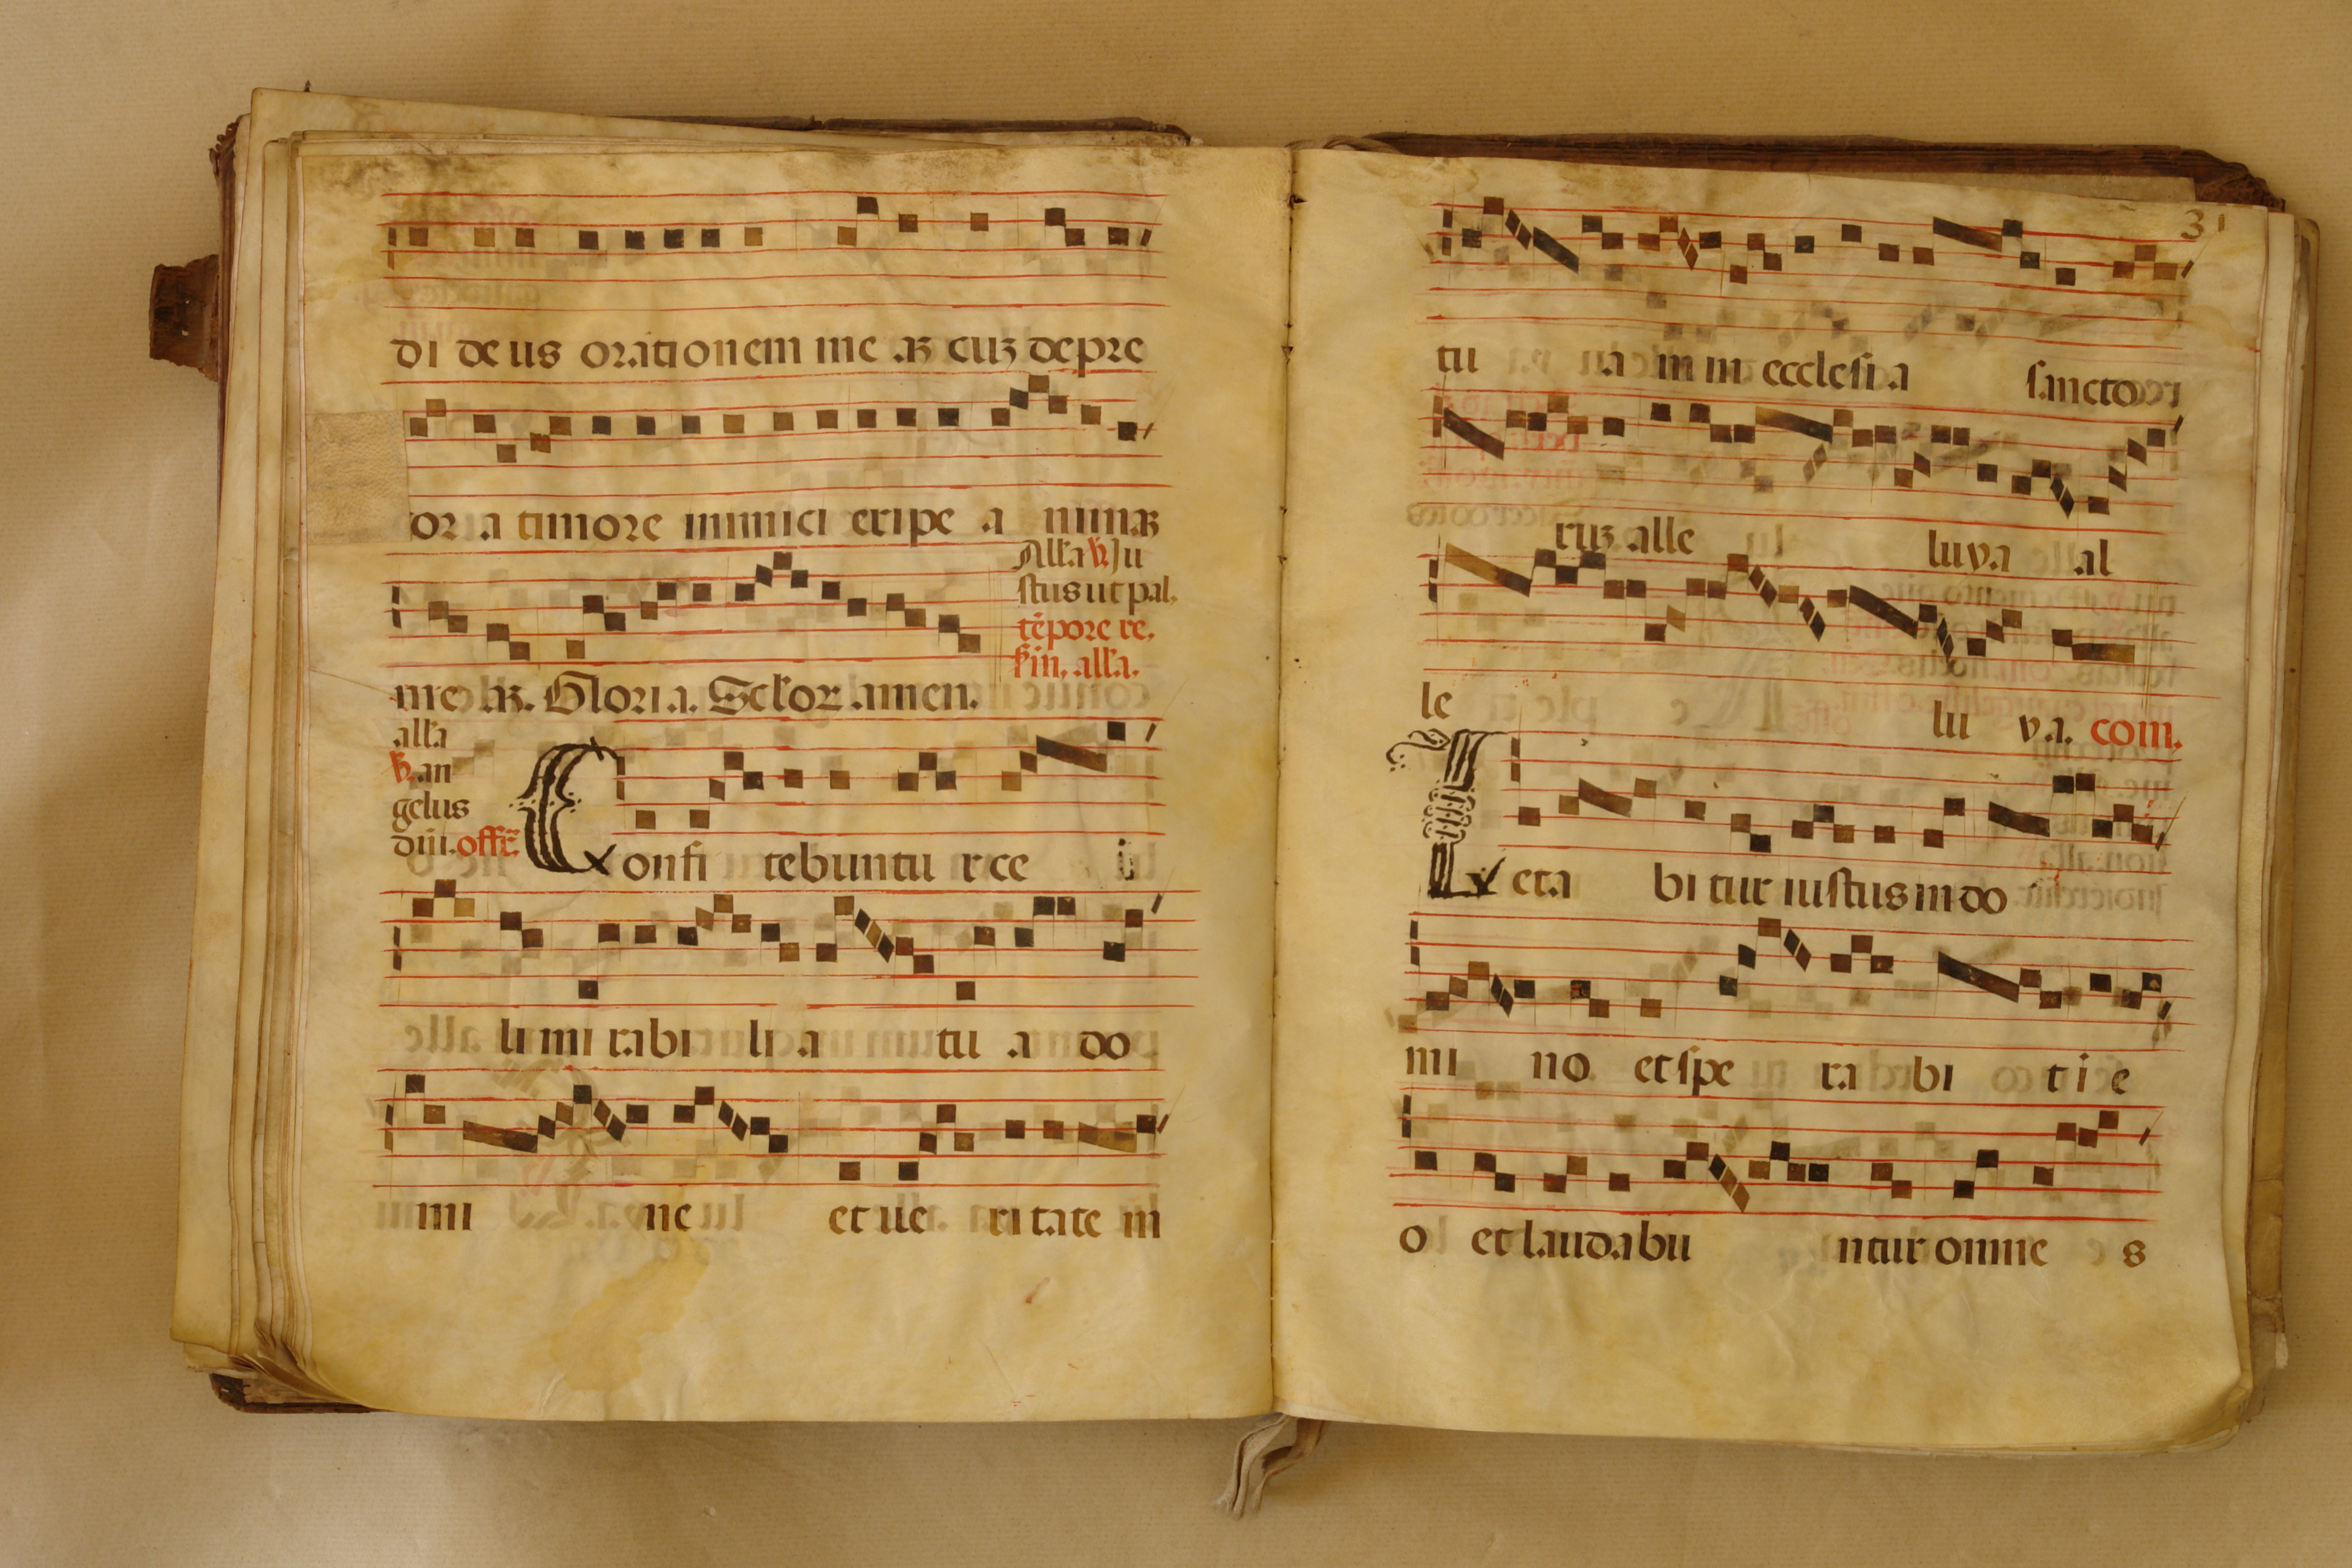 di deus orationem meaꝫ cuꝫ depre
or a timore inimici eripe a nimaꝫ
All'a ℣. Ju
stus ut pal.
tēpore re.
all'a.
meaꝫ. Gloria. Sc̄l'or amen.
all'a
℣. an
gelus
dn̄i. offr̄.
Confi tebuntur ce i
li mirabilia tu a do
mi ne et ue ritate in
31
tu a m in ecclesia sanctor
ruꝫ alle luya al
le lu ya. com.
Leta bitur iustus in do
mi no et spe ra bi t i e
o et laudabu ntur omne s